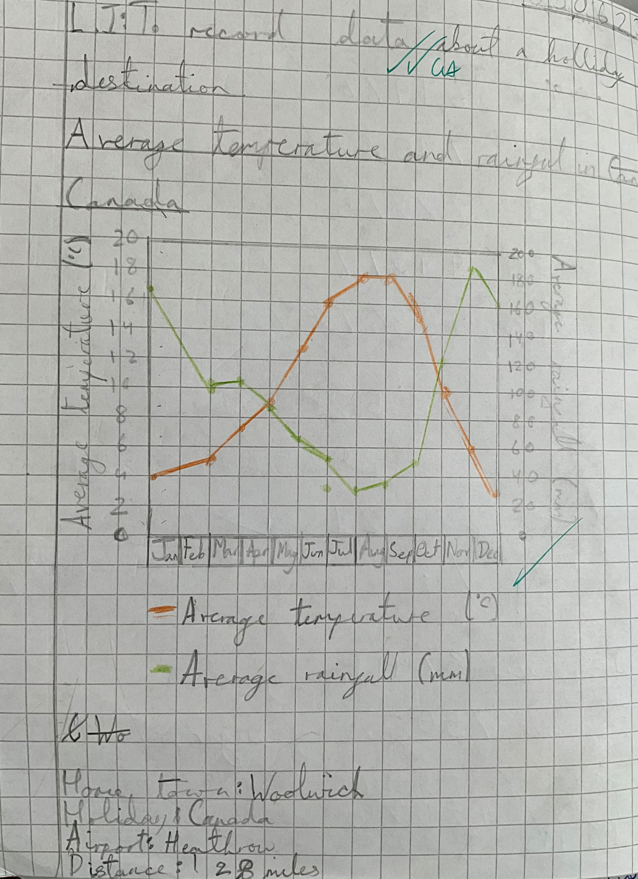 L.I: To record data about a holliday
destination
GA
Average temperature and rainfall in
Canada
Average temperature (°C)
20
18
16
14
12
10
8
6
4
2
0
200
180
160
140
120
100
80
60
40
20
0
Average rainfall (mm)
Jan Feb Mar Apr May Jun Jul Aug Sep Oct Nov Dec
Average temperature (°C)
Average rainfall (mm)
Home town: Woolwich
Holiday: Canada
Airport: Heathrow
Distance: 28 miles